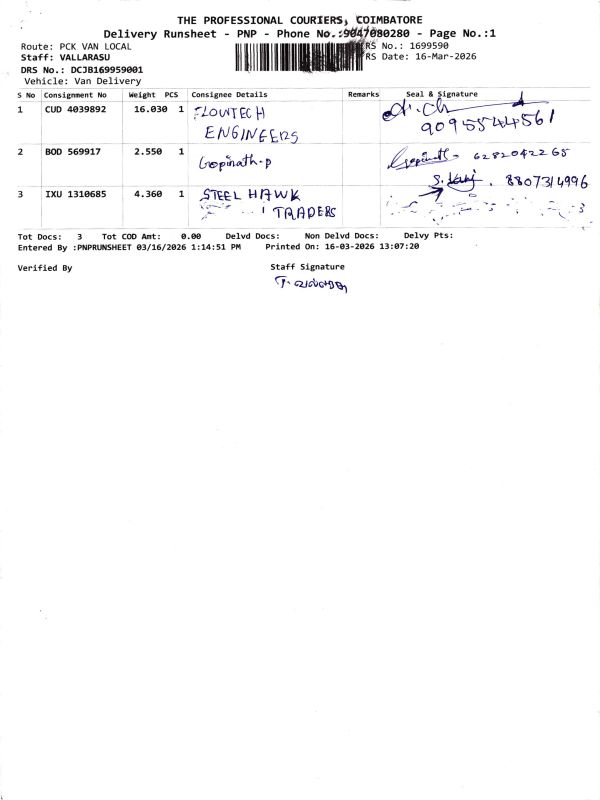 THE PROFESSIONAL COURIERS, COIMBATORE
Delivery Runsheet - PNP - Phone No.:9047080280 - Page No.:1
Route: PCK VAN LOCAL
RS No.: 1699590
Staff: VALLARASU
RS Date: 16-Mar-2026
DRS No.: DCJB169959001
Vehicle: Van Delivery
S No Consignment No Weight PCS Consignee Details Remarks Seal & Signature
1 CUD 4039892 16.030 1 FLOWTECH ENGINEERS
9095544561
2 BOD 569917 2.550 1 Gopinath.P Gopinath 6282042265
3 IXU 1310685 4.360 1 STEEL HAWK TRADERS
8807314996
Tot Docs: 3 Tot COD Amt: 0.00 Delvd Docs: Non Delvd Docs: Delvy Pts:
Entered By :PNPRUNSHEET 03/16/2026 1:14:51 PM Printed On: 16-03-2026 13:07:20
Verified By Staff Signature